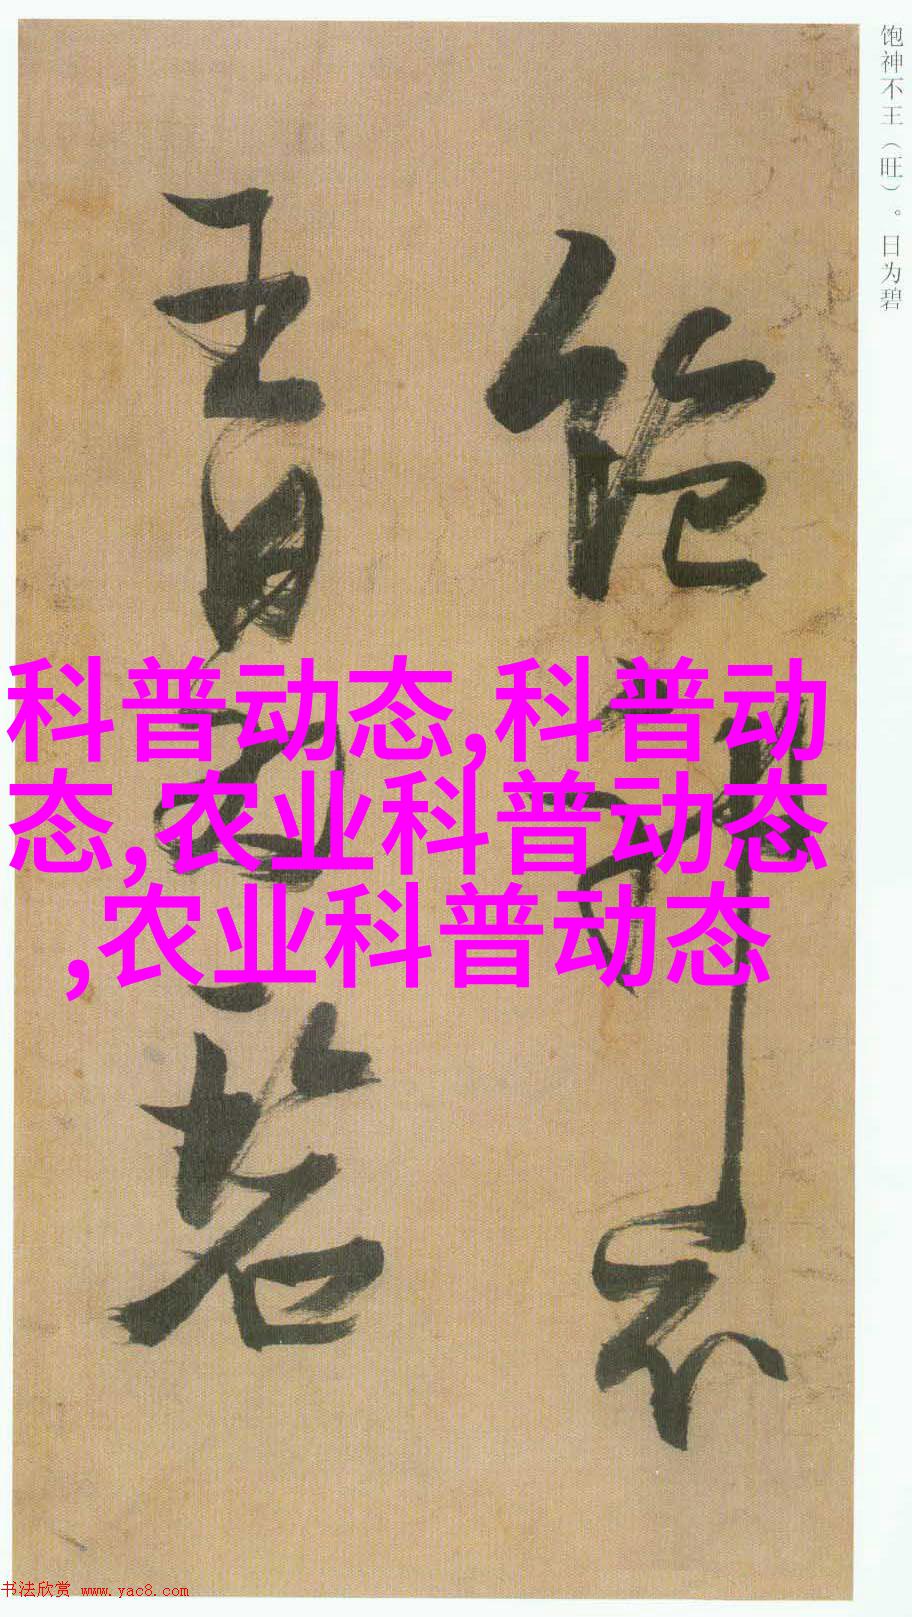 饱神不王（旺）。日为碧
饱神不
王日为碧
科普动态,科普动
态,农业科普动态
,农业科普动态
书法欣赏 www.yac8.com